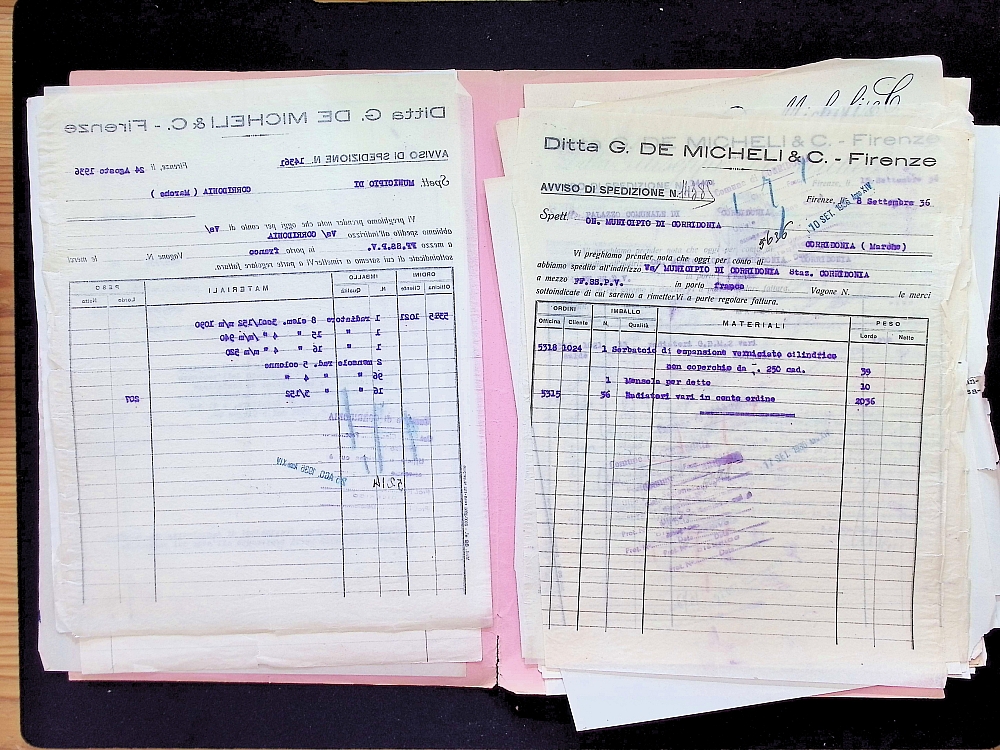 Ditta G. DE MICHELI & C. - Firenze
AVVISO DI SPEDIZIONE N. 14361
Firenze, li 24 Agosto 1936
Spett. MUNICIPIO DI
CORRIDONIA ( Marche )
Vi preghiamo prender nota che oggi per conto di Vs/
abbiamo spedito all'indirizzo Vs/ CORRIDONIA
a mezzo FF.SS.P.V. in porto franco Vagone N. le merci
sottoindicate di cui saremo a rimetterVi a parte regolare fattura.
ORDINI IMBALLO MATERIALI PESO
Officina Cliente N. Qualità Lordo Netto
5315 1021 1 radiatore 8 elem. 3col/152 m/m 1090
1 " 15 " 4 " m/m 940
1 " 16 " 4 "m/m 520
2 mensole rad. 5 colonne
96 " " 4 "
16 " " 5/152 207
5214
Ditta G. DE MICHELI & C. - Firenze
AVVISO DI SPEDIZIONE N.
Firenze, li 8 Settembre 36
10 SET. 1936 Anno XIV
Spett. ON. MUNICIPIO DI CORRIDONIA
5636
CORRIDONIA ( Marche )
Vi preghiamo prender nota che oggi per conto di
abbiamo spedito all'indirizzo Vs/ MUNICIPIO DI CORRIDONIA Staz. CORRIDONIA
a mezzo FF.SS.P.V. in porto franco Vagone N. le merci
sottoindicate di cui saremo a rimetterVi a parte regolare fattura.
ORDINI IMBALLO MATERIALI PESO
Officina Cliente N. Qualità Lordo Netto
5318 1024 1 Serbatoio di espansione verniciato cilindrico
con coperchio da 250 cad. 39
1 Mensola per detto 10
5315 56 Radiatori vari in conto ordine 2036